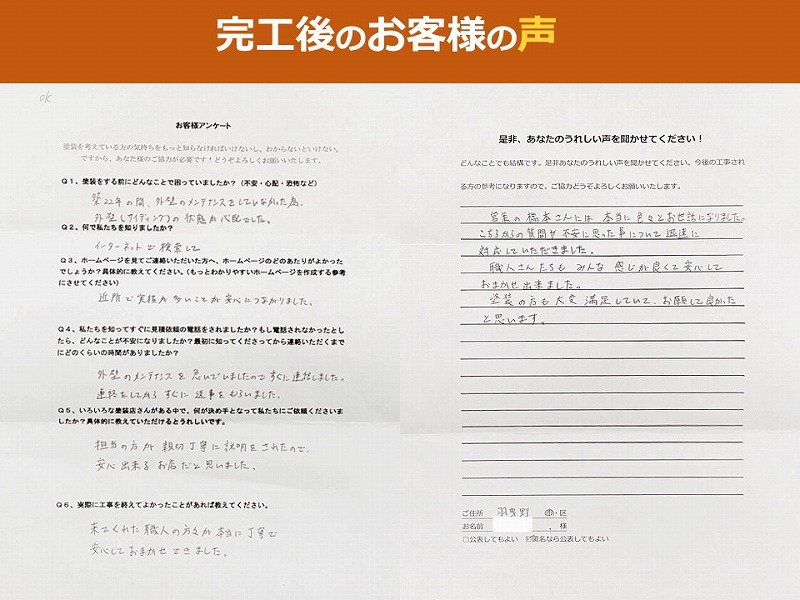 完工後のお客様の声
OK
お客様アンケート
塗装を考えている方の気持ちをもっと知らなければいけないし、わからないといけない。
ですから、あなた様のご協力が必要です！どうぞよろしくお願いいたします。
Q１、塗装をする前にどんなことで困っていましたか？（不安・心配・恐怖など）
築22年の間、外壁のメンテナンスをしていなかった為、
外壁（サイディング）の状態が心配でした。
Q２、何で私たちを知りましたか？
インターネットで検索して
Q３、ホームページを見てご連絡いただいた方へ、ホームページのどのあたりがよかった
でしょうか？具体的に教えてください。（もっとわかりやすいホームページを作成する参考
にさせてください）
近所で実績が多いことが安心につながりました、
Q４、私たちを知ってすぐに見積依頼の電話をされましたか？もし電話されなかったとし
たら、どんなことが不安になりましたか？最初に知ってくださってから連絡いただくまで
にどのくらいの時間がありましたか？
外壁のメンテナンスを急いでいましたのですぐに連絡しました。
連絡をしてからすぐに返事をもらいました。
Q５、いろいろな塗装店さんがある中で、何が決め手となって私たちにご依頼くださいま
したか？具体的に教えていただけるとうれしいです。
担当の方が親切丁寧に説明をされたので、
安心出来るお店だと思いました、
Q６、実際に工事を終えてよかったことがあれば教えてください。
来てくれた職人の方々が本当に丁寧で
安心しておまかせできました。
是非、あなたのうれしい声を聞かせてください！
どんなことでも結構です。是非あなたのうれしい声を聞かせてください。今後の工事され
る方の参考になりますので、ご協力どうぞよろしくお願いいたします。
営業の橋本さんには本当に色々とお世話になりました。
こちらからの質問や不安に思った事について迅速に
対応していただきました。
職人さんたちもみんな感じが良くて安心して
おまかせ出来ました。
塗装の方も大変満足していて、お願して良かった
と思います。
ご住所 羽曳野 市・区
お名前 様
□公表してもよい ☑匿名なら公表してもよい